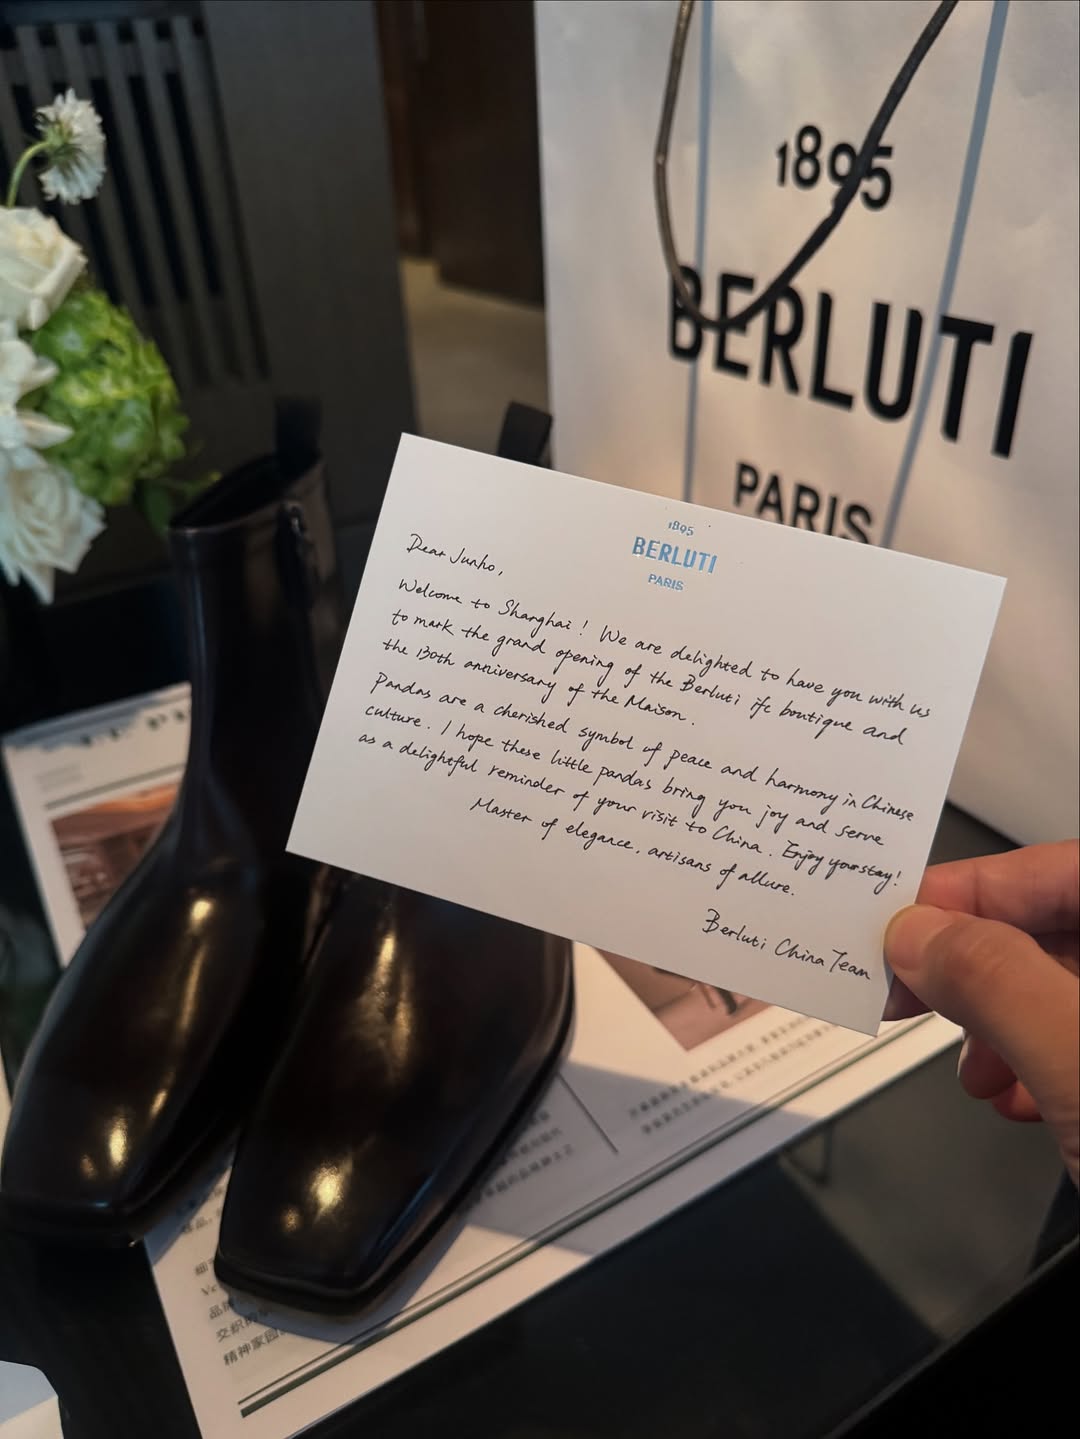 1895
BERLUTI
PARIS
1895
BERLUTI
PARIS
Dear Junho,
Welcome to Shanghai! We are delighted to have you with us
to mark the grand opening of the Berluti ifc boutique and
the 130th anniversary of the Maison.
Pandas are a cherished symbol of peace and harmony in Chinese
culture. I hope these little pandas bring you joy and serve
as a delightful reminder of your visit to China. Enjoy your stay!
Master of elegance, artisans of allure.
Berluti China Team
品牌
交织
精神家园